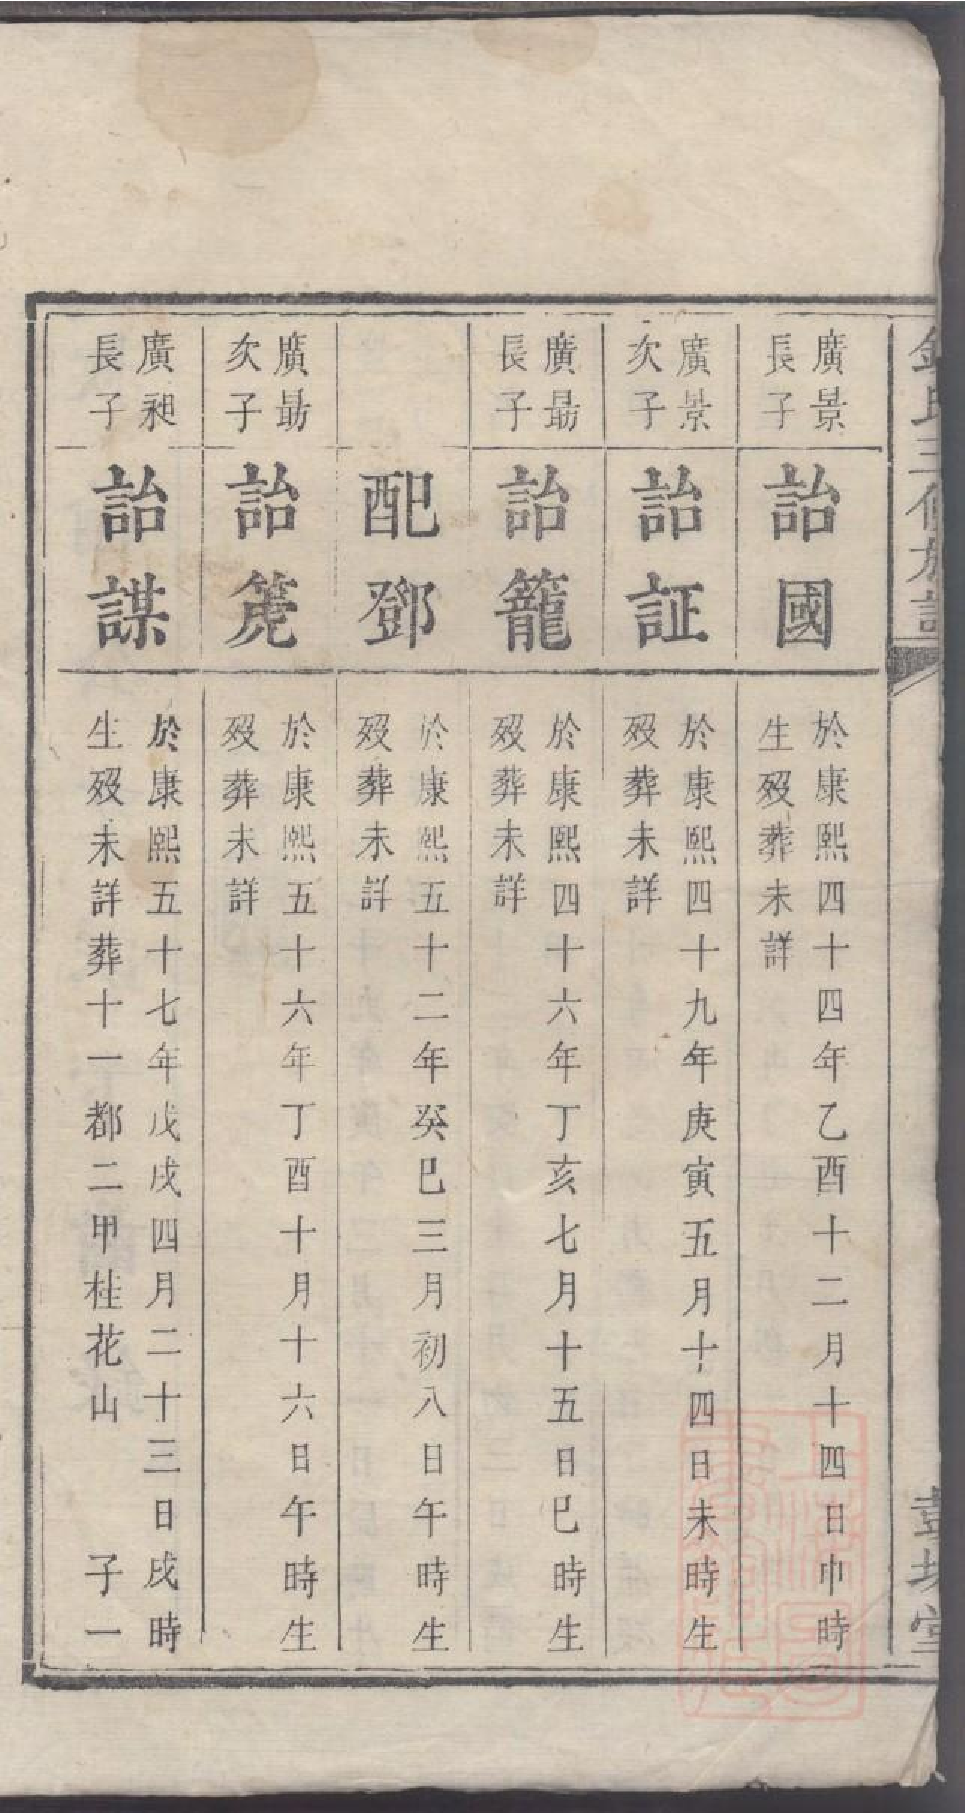 氏三修族譜
廣景
長子
詒國
於康熙四十四年乙酉十二月十四日申時
生歿葬未詳
廣景
次子
詒証
於康熙四十九年庚寅五月十四日未時生
歿葬未詳
廣勗
長子
詒籠
於康熙四十六年丁亥七月十五日巳時生
歿葬未詳
配鄧
於康熙五十二年癸巳三月初八日午時生
歿葬未詳
廣勗
次子
詒箎
於康熙五十六年丁酉十月十六日午時生
歿葬未詳
廣昶
長子
詒謀
於康熙五十七年戊戌四月二十三日戌時
生歿未詳葬十一都二甲桂花山 子一